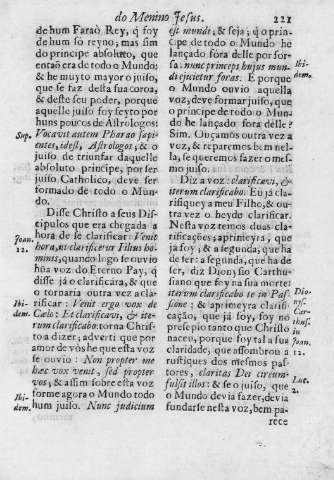 do Menino Jesus. 221
de hum Faraò Rey, q̃ foy
de hum só reyno; mas sim
do principe absoluto, que
entaõ era de todo o Mundo,
& he muyto mayor o juiso,
que se faz desta sua coroa,
& deste seu poder, porque
aquelle juiso foy feyto por
huns poucos de Astrologos
Sup. Vocavit autem Pharao sapi-
entes, idest, Astrologos; & o
juiso de triunfar daquelle
absoluto principe, por ser
juiso Catholico, deve ser
formado de todo o Mun-
do.
Disse Christo a seus Dis-
cipulos que era chegada a
hora de se clarificar: Venit
Joan. 12. hora, ut clarificetur Filius ho-
minis, quando logo se ouvio
hũa voz do Eterno Pay, q̃
disse já o clarificára, & que
o tornaria outra vez a cla-
Ibi- rificar: Venit ergo vox de
dem. Cælo: Et clarificavi, & ite-
rum clarificabo: torna Chris-
to a dizer; adverti que por
amor de vòs he que esta voz
se ouvio: Non propter me
hæc vox venit, sed propter
vos; & assim sobre esta voz
forme agora o Mundo todo
Ibi-dem. hum juiso. Nunc judicium
est mundi; & seja; q̃ o prin-
cipe de todo o Mundo he
lançado fóra delle por for-
sa: nunc princeps hujus mun- Ibi-
di ejicietur foras. E porque dem.
o Mundo ouvio aquella
voz, deve formar juiso, que
o principe de todo o Mun-
do he lançado fóra delle?
Sim. Ouçamos outra vez a
voz, & reparemos bem nel-
la, se queremos fazer o mes-
mo juiso.
Diz a voz: clarificavi, &
iterum clarificabo. Eu já cla-
rifiquey a meu Filho, & ou-
tra vez o heyde clarificar.
Nesta voz temos duas cla-
rificações; a primeyra, que
já foy, & a segunda, que ha
de ser: a segunda, que ha de
ser, diz Dionysio Carthu-
siano que foy na sua morte:
iterum clarificabo te in Pas- Dio-
sione; & a primeyra clarifi- nys.
cação, que já foy, foy no Car-
presepio tanto que Christo thus.
naceu, porque foy tal a sua in Joan.
claridade, que assombrou a 12.
rusticos dos mesmos pas-
tores, claritas Dei circum-
fulsit illos: & se o juiso, que Luc.
o Mundo devia fazer, devia 2.
fundarse nesta voz, bem pa-
rece